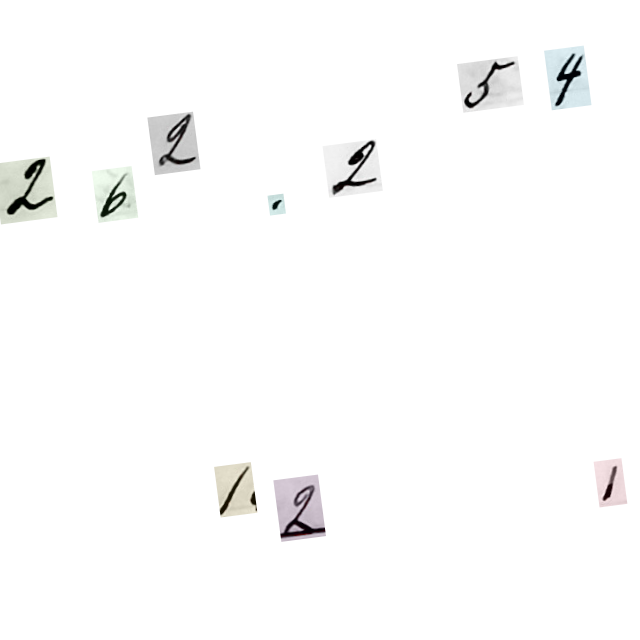 262.254
121